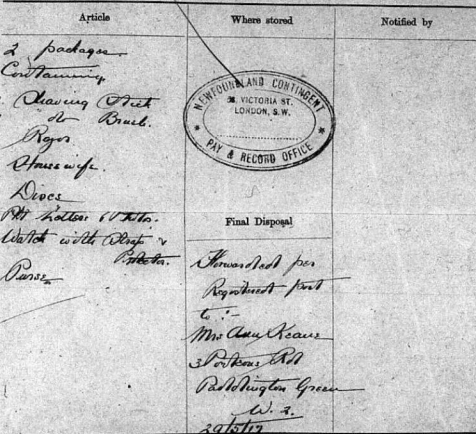 Article
Where stored
Notified by
2 packages
Containing
Shaving Stick
do Brush.
Razor
Housewife.
Discs
letters
Watch with Strap &
Purse
NEWFOUNDLAND CONTINGENT
VICTORIA ST.
LONDON, S.W.
PAY & RECORD OFFICE
Final Disposal
Forwarded per
Registered post
to :-
Mrs Ann Keane
3 Rd
Paddington Green
W. 2.
29/5/17